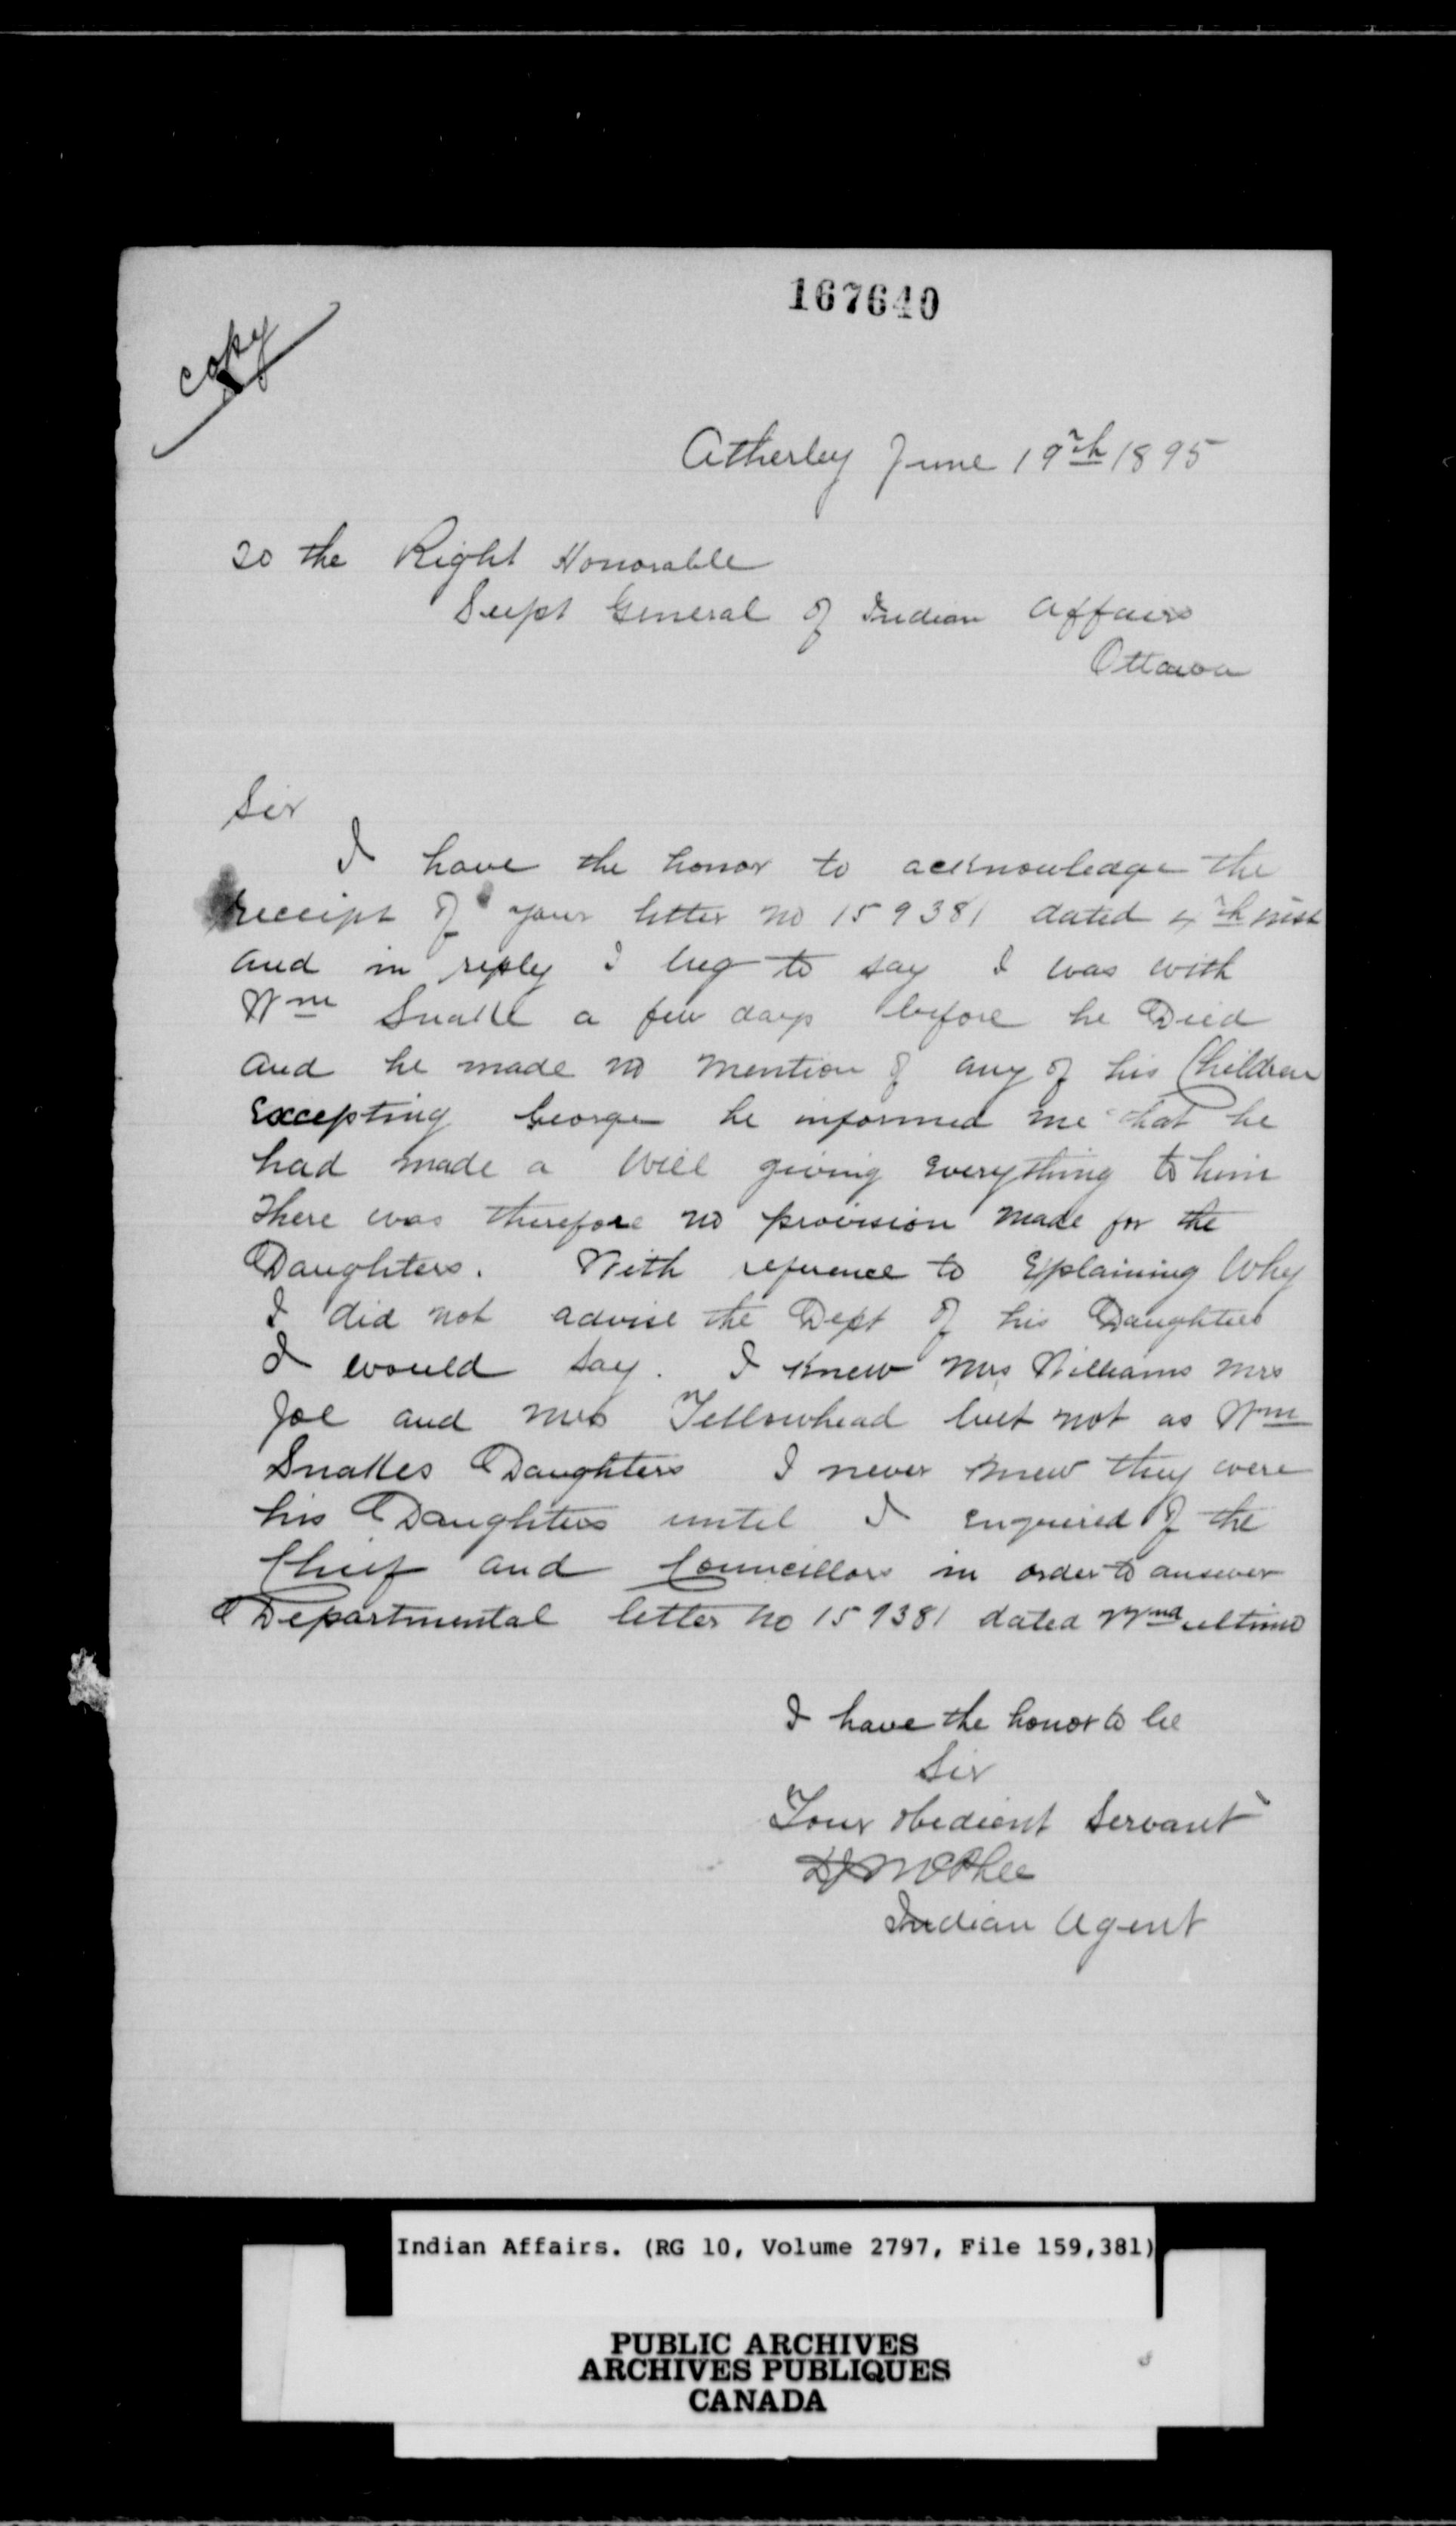 167640
copy
Atherley June 19th 1895
To the Right Honorable
Supt General of Indian Affairs
Ottawa
Sir
I have the honor to acknowledge the
receipt of your letter no 159381 dated 4th inst
and in reply I beg to say I was with
Wm Snake a few days before he Died
and he made no mention of any of his Children
Excepting George he informed me that he
had made a Will giving Everything to him
There was therefore no provision made for the
Daughters. With reference to Explaining Why
I did not advise the Dept of his Daughters
I would say. I knew Mrs Williams Mrs
Joe and Mrs Yellowhead but not as Wm
Snakes Daughters I never knew they were
his Daughters until I enquired of the
Chief and Councillors in order to answer
Departmental letter no 159381 dated 22nd ultimo
I have the honor to be
Sir
Your obedient Servant
DJ McPhee
Indian Agent
Indian Affairs. (RG 10, Volume 2797, File 159,381)
PUBLIC ARCHIVES
ARCHIVES PUBLIQUES
CANADA